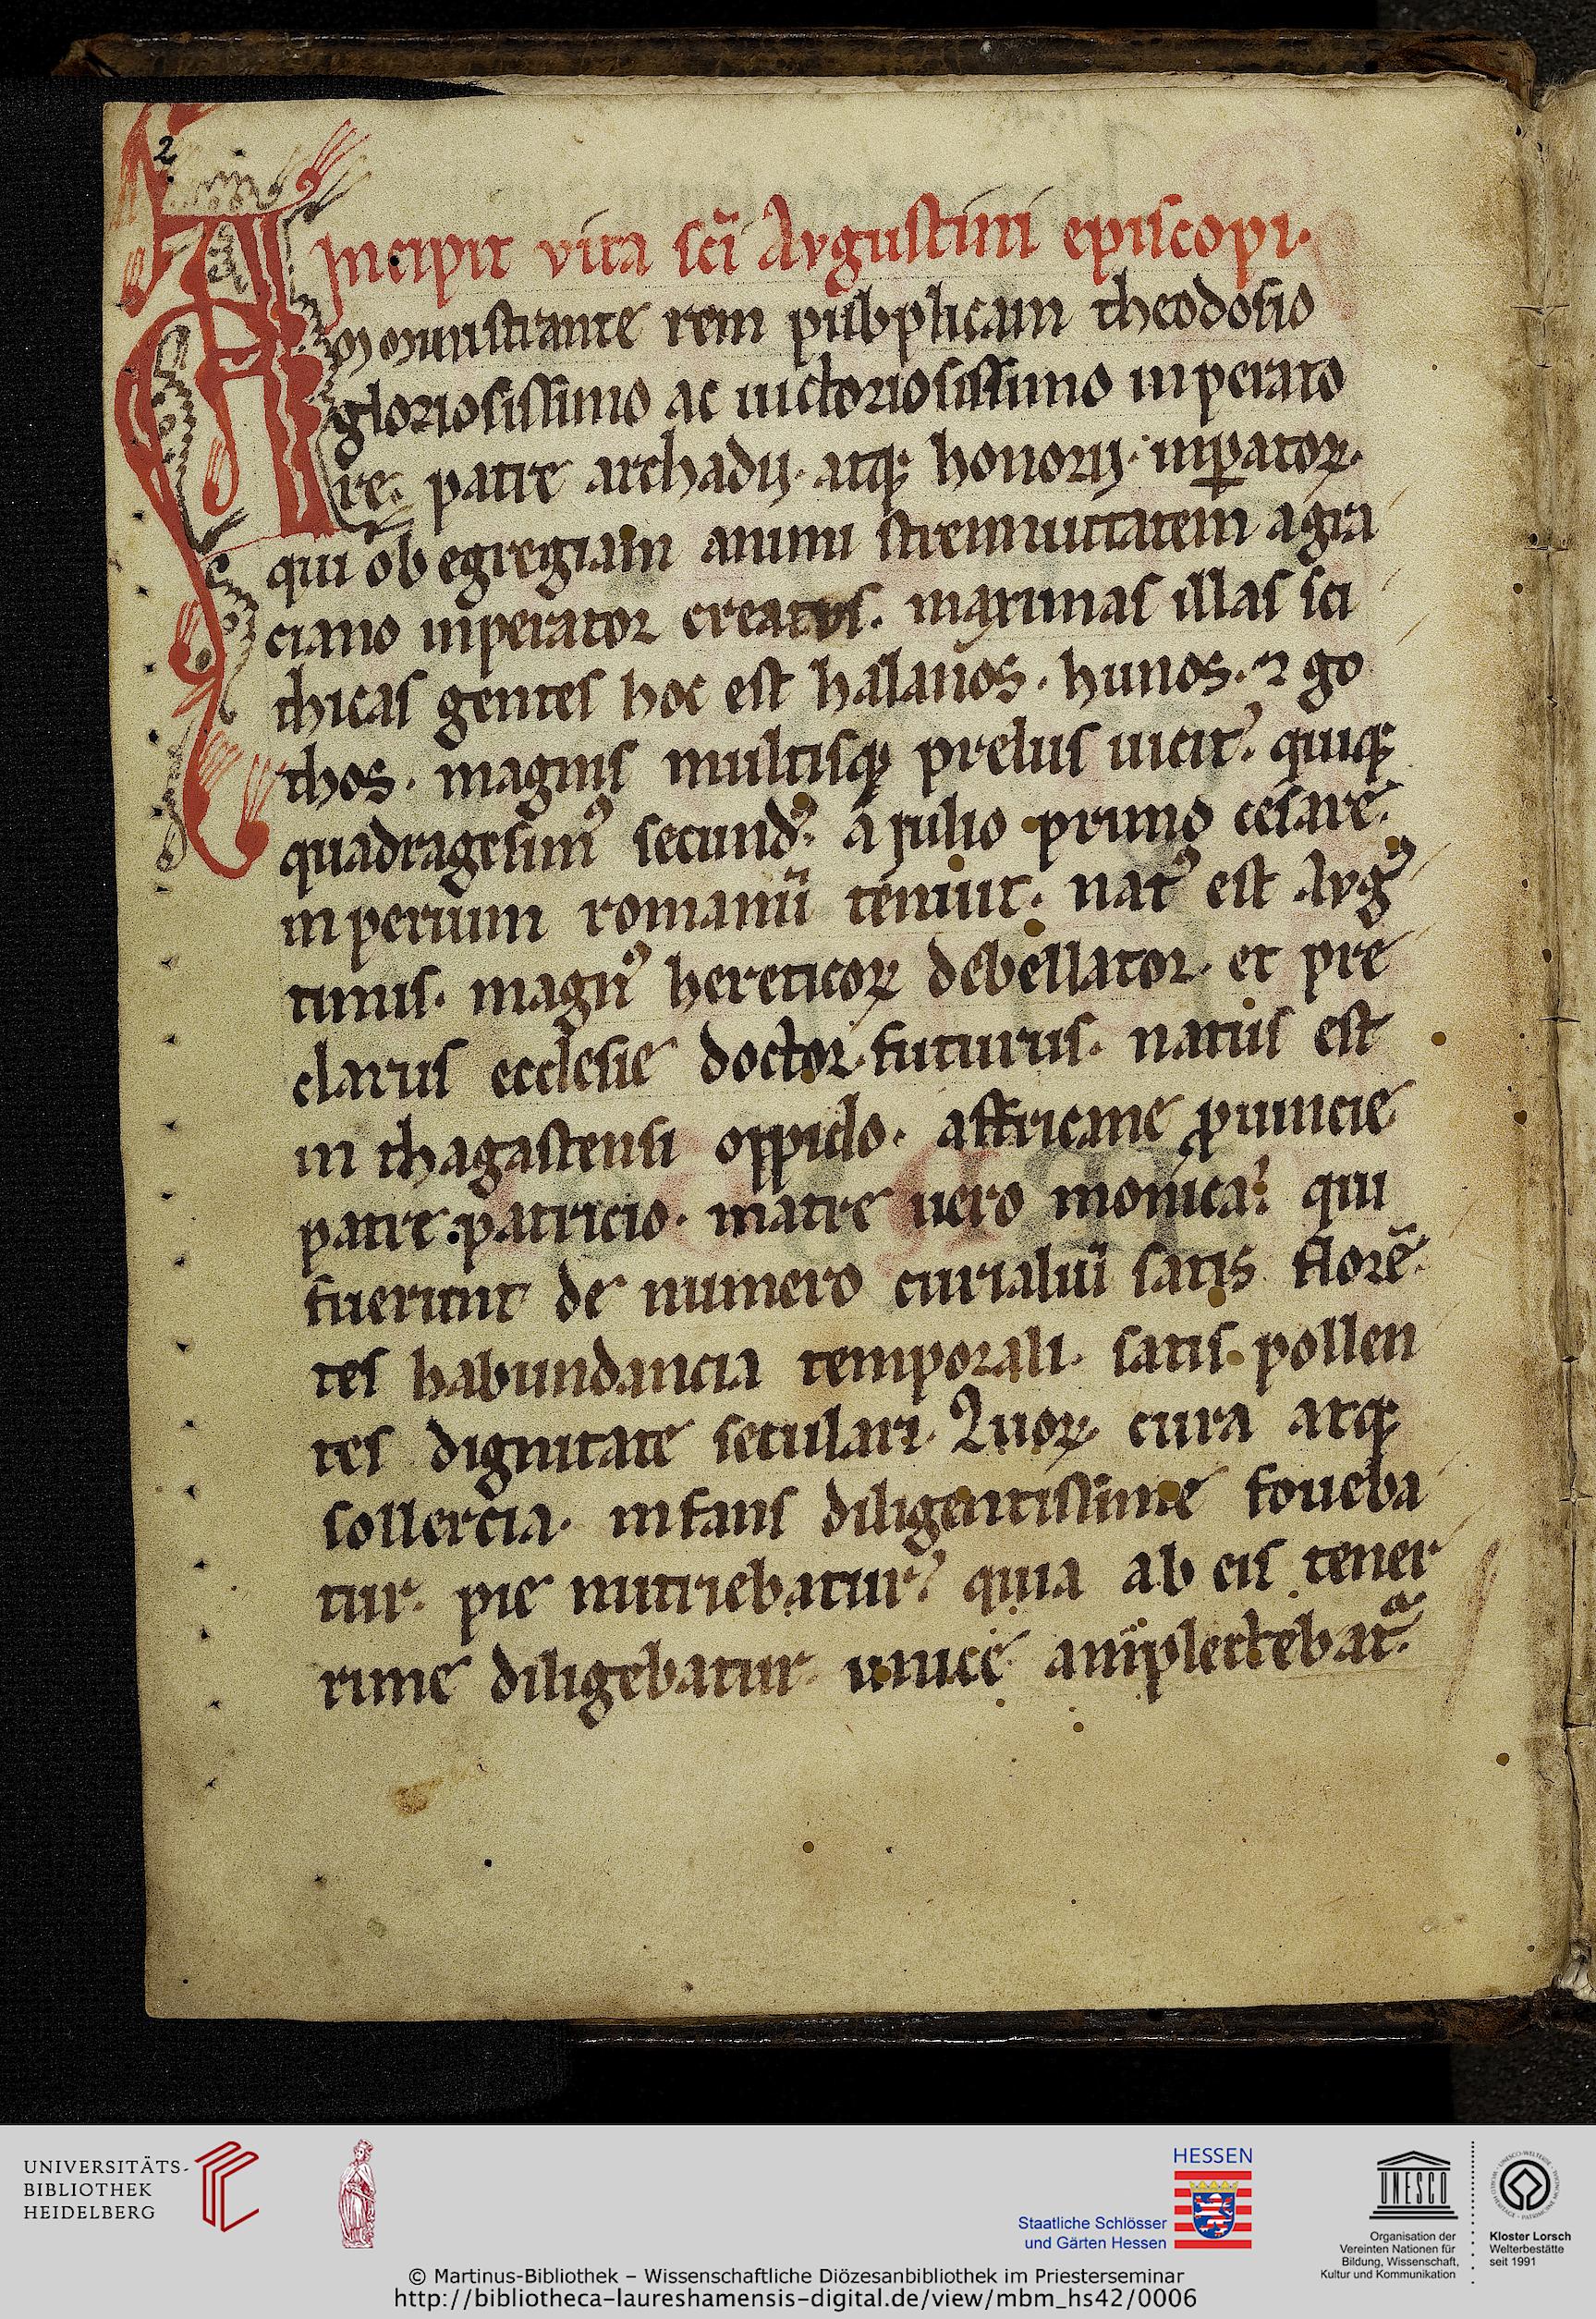 2
Incipit vita sc̄i Avgustini episcopi.
A
mministrante rem pubplicam theodosio
gloriosissimo ac uictoriosissimo inperato
re. patre archadij. atqꝫ honorij. inꝑatoꝝ.
qui ob egregiam animi strennuitatem a gra
ciano inperator creatvs. maximas illas sci
thicas gentes hoc est halanos. hunos. ⁊ go
thos. magnis multisqꝫ preliis uicit. quiqꝫ
quadragesimꝰ secundꝰ. a julio primo cesare.
inperium romanū tenuit. natꝰ est Avgꝰ
tinus. magnꝰ hereticoꝝ debellator. et pre
clarus ecclesie doctor. futurus. natus est
in thagastensi oppido. affricane ꝓuincie
patre. patricio. matre uero monica. qui
fuerunt de numero curialiū satis florē
tes habundancia temporali. satis pollen
tes dignitate seculari. Quoꝝ cura atqꝫ
sollercia. infans diligentissime foueba
tur. pie nutriebatur. quia ab eis tener
rime diligebatur. vnice amplectebat᷑.
UNIVERSITÄTS-
BIBLIOTHEK
HEIDELBERG
HESSEN
Staatliche Schlösser
und Gärten Hessen
UNESCO
Organisation der
Vereinten Nationen für
Bildung, Wissenschaft,
Kultur und Kommunikation
Kloster Lorsch
Welterbestätte
seit 1991
© Martinus-Bibliothek – Wissenschaftliche Diözesanbibliothek im Priesterseminar
http://bibliotheca-laureshamensis-digital.de/view/mbm_hs42/0006